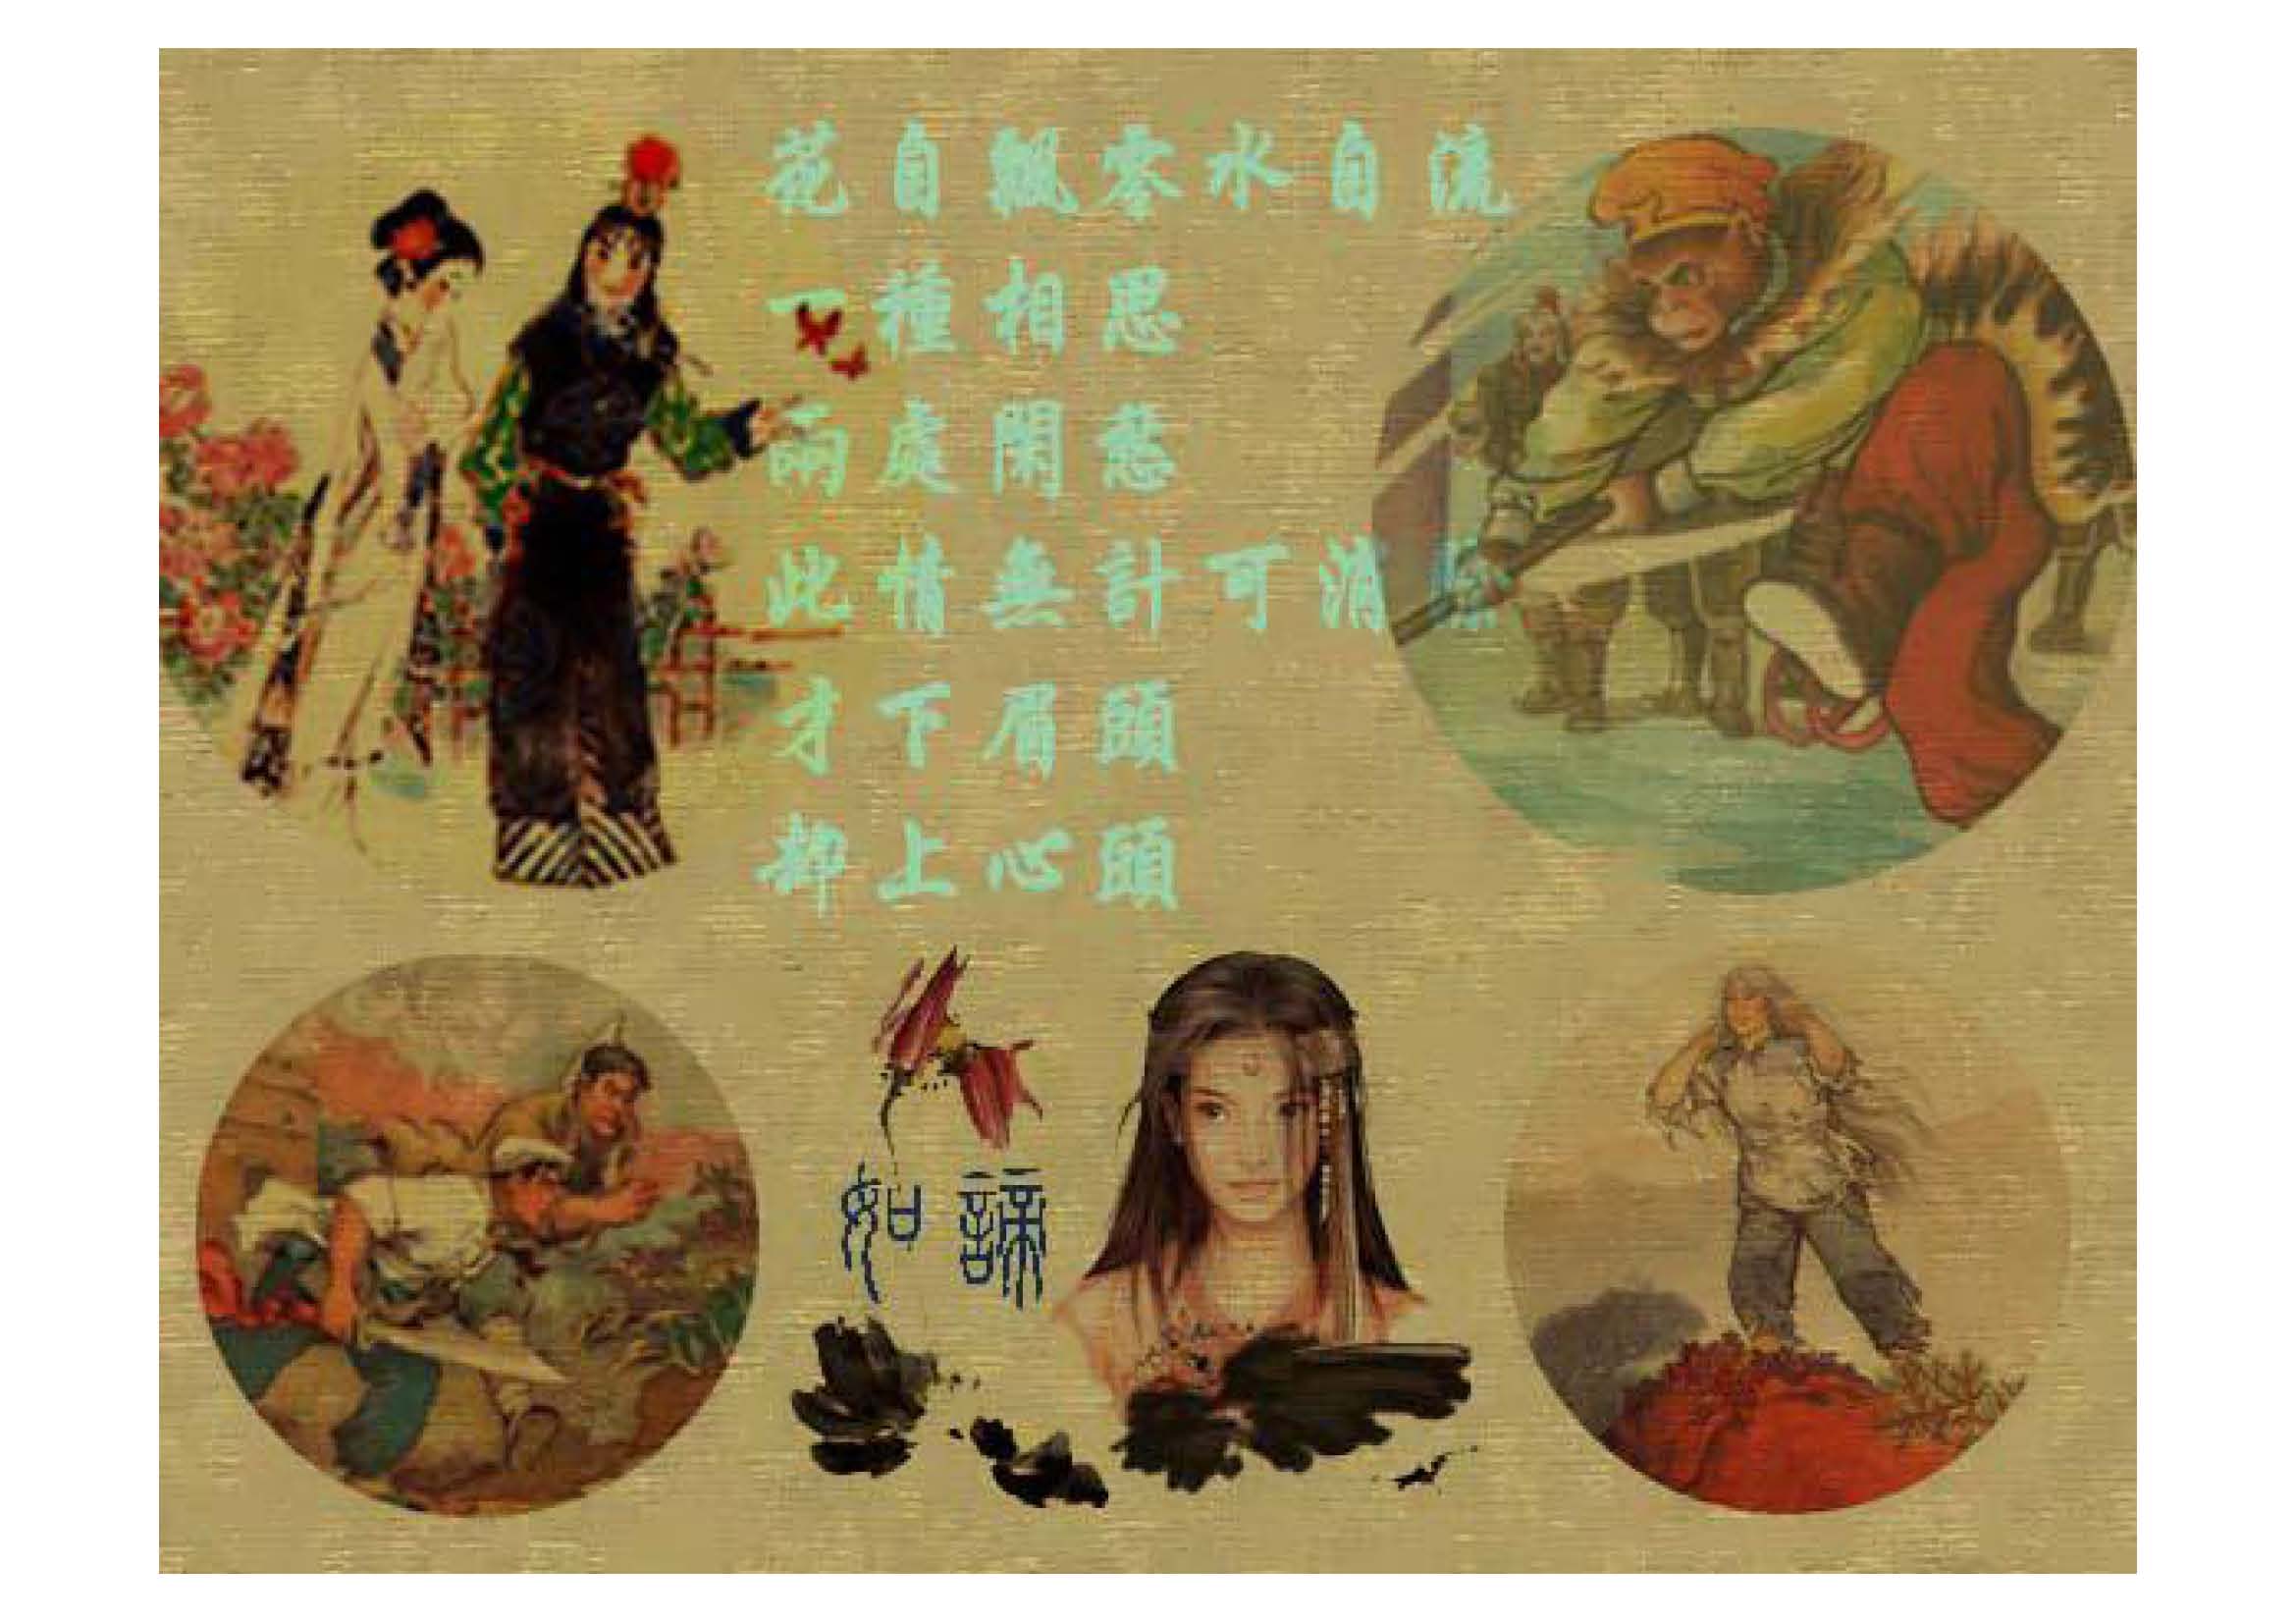 花自飄零水自流
一種相思
兩處閑愁
此情無計可消除
才下眉頭
卻上心頭
如諦